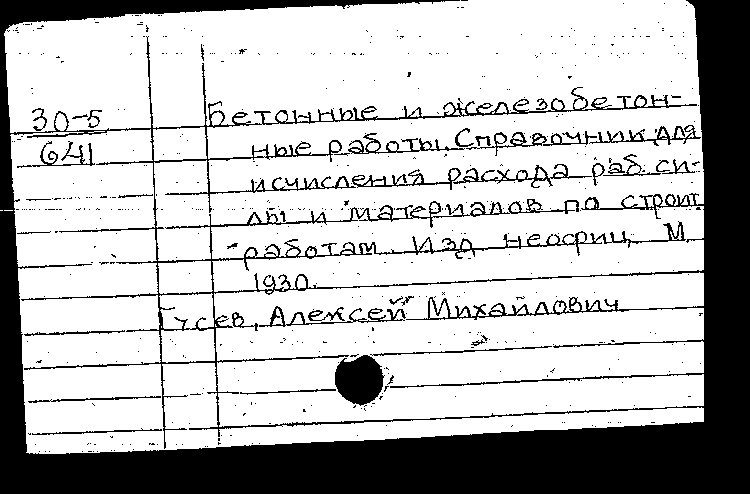 30-5
641
Бетонные и железобетон-
ные работы. Справочник для
исчисления расхода раб. си-
лы и материалов по строит.
работам. Изд. неофиц. М.
1930.
Гусев, Алексей Михайлович